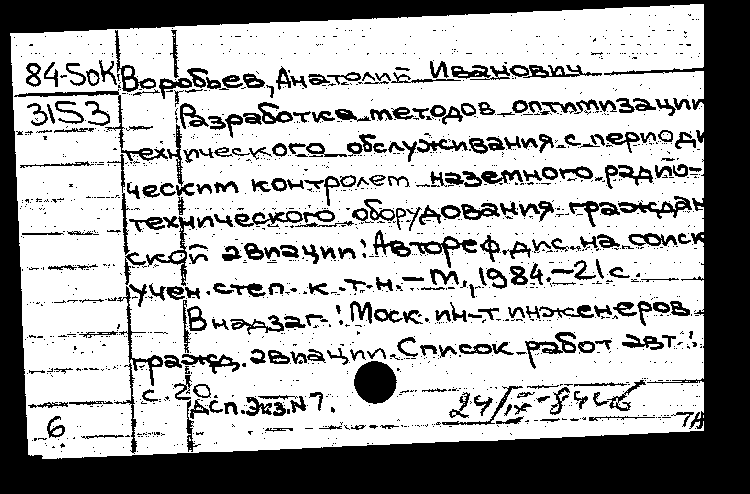 84-5ок Воробьев, Анатолий Иванович
3153 Разработка методов оптимизации
технического обслуживания с периоди
ческим контролем наземного радио-
технического оборудования граждан
ской авиации: Автореф. дис. на соиск
учен. степ. к.т.н. – М., 1984. – 21 с.
В надзаг.: Моск. ин-т инженеров
гражд. авиации. Список работ авт.:
с. 20
ДСП. Экз. N 7.
6